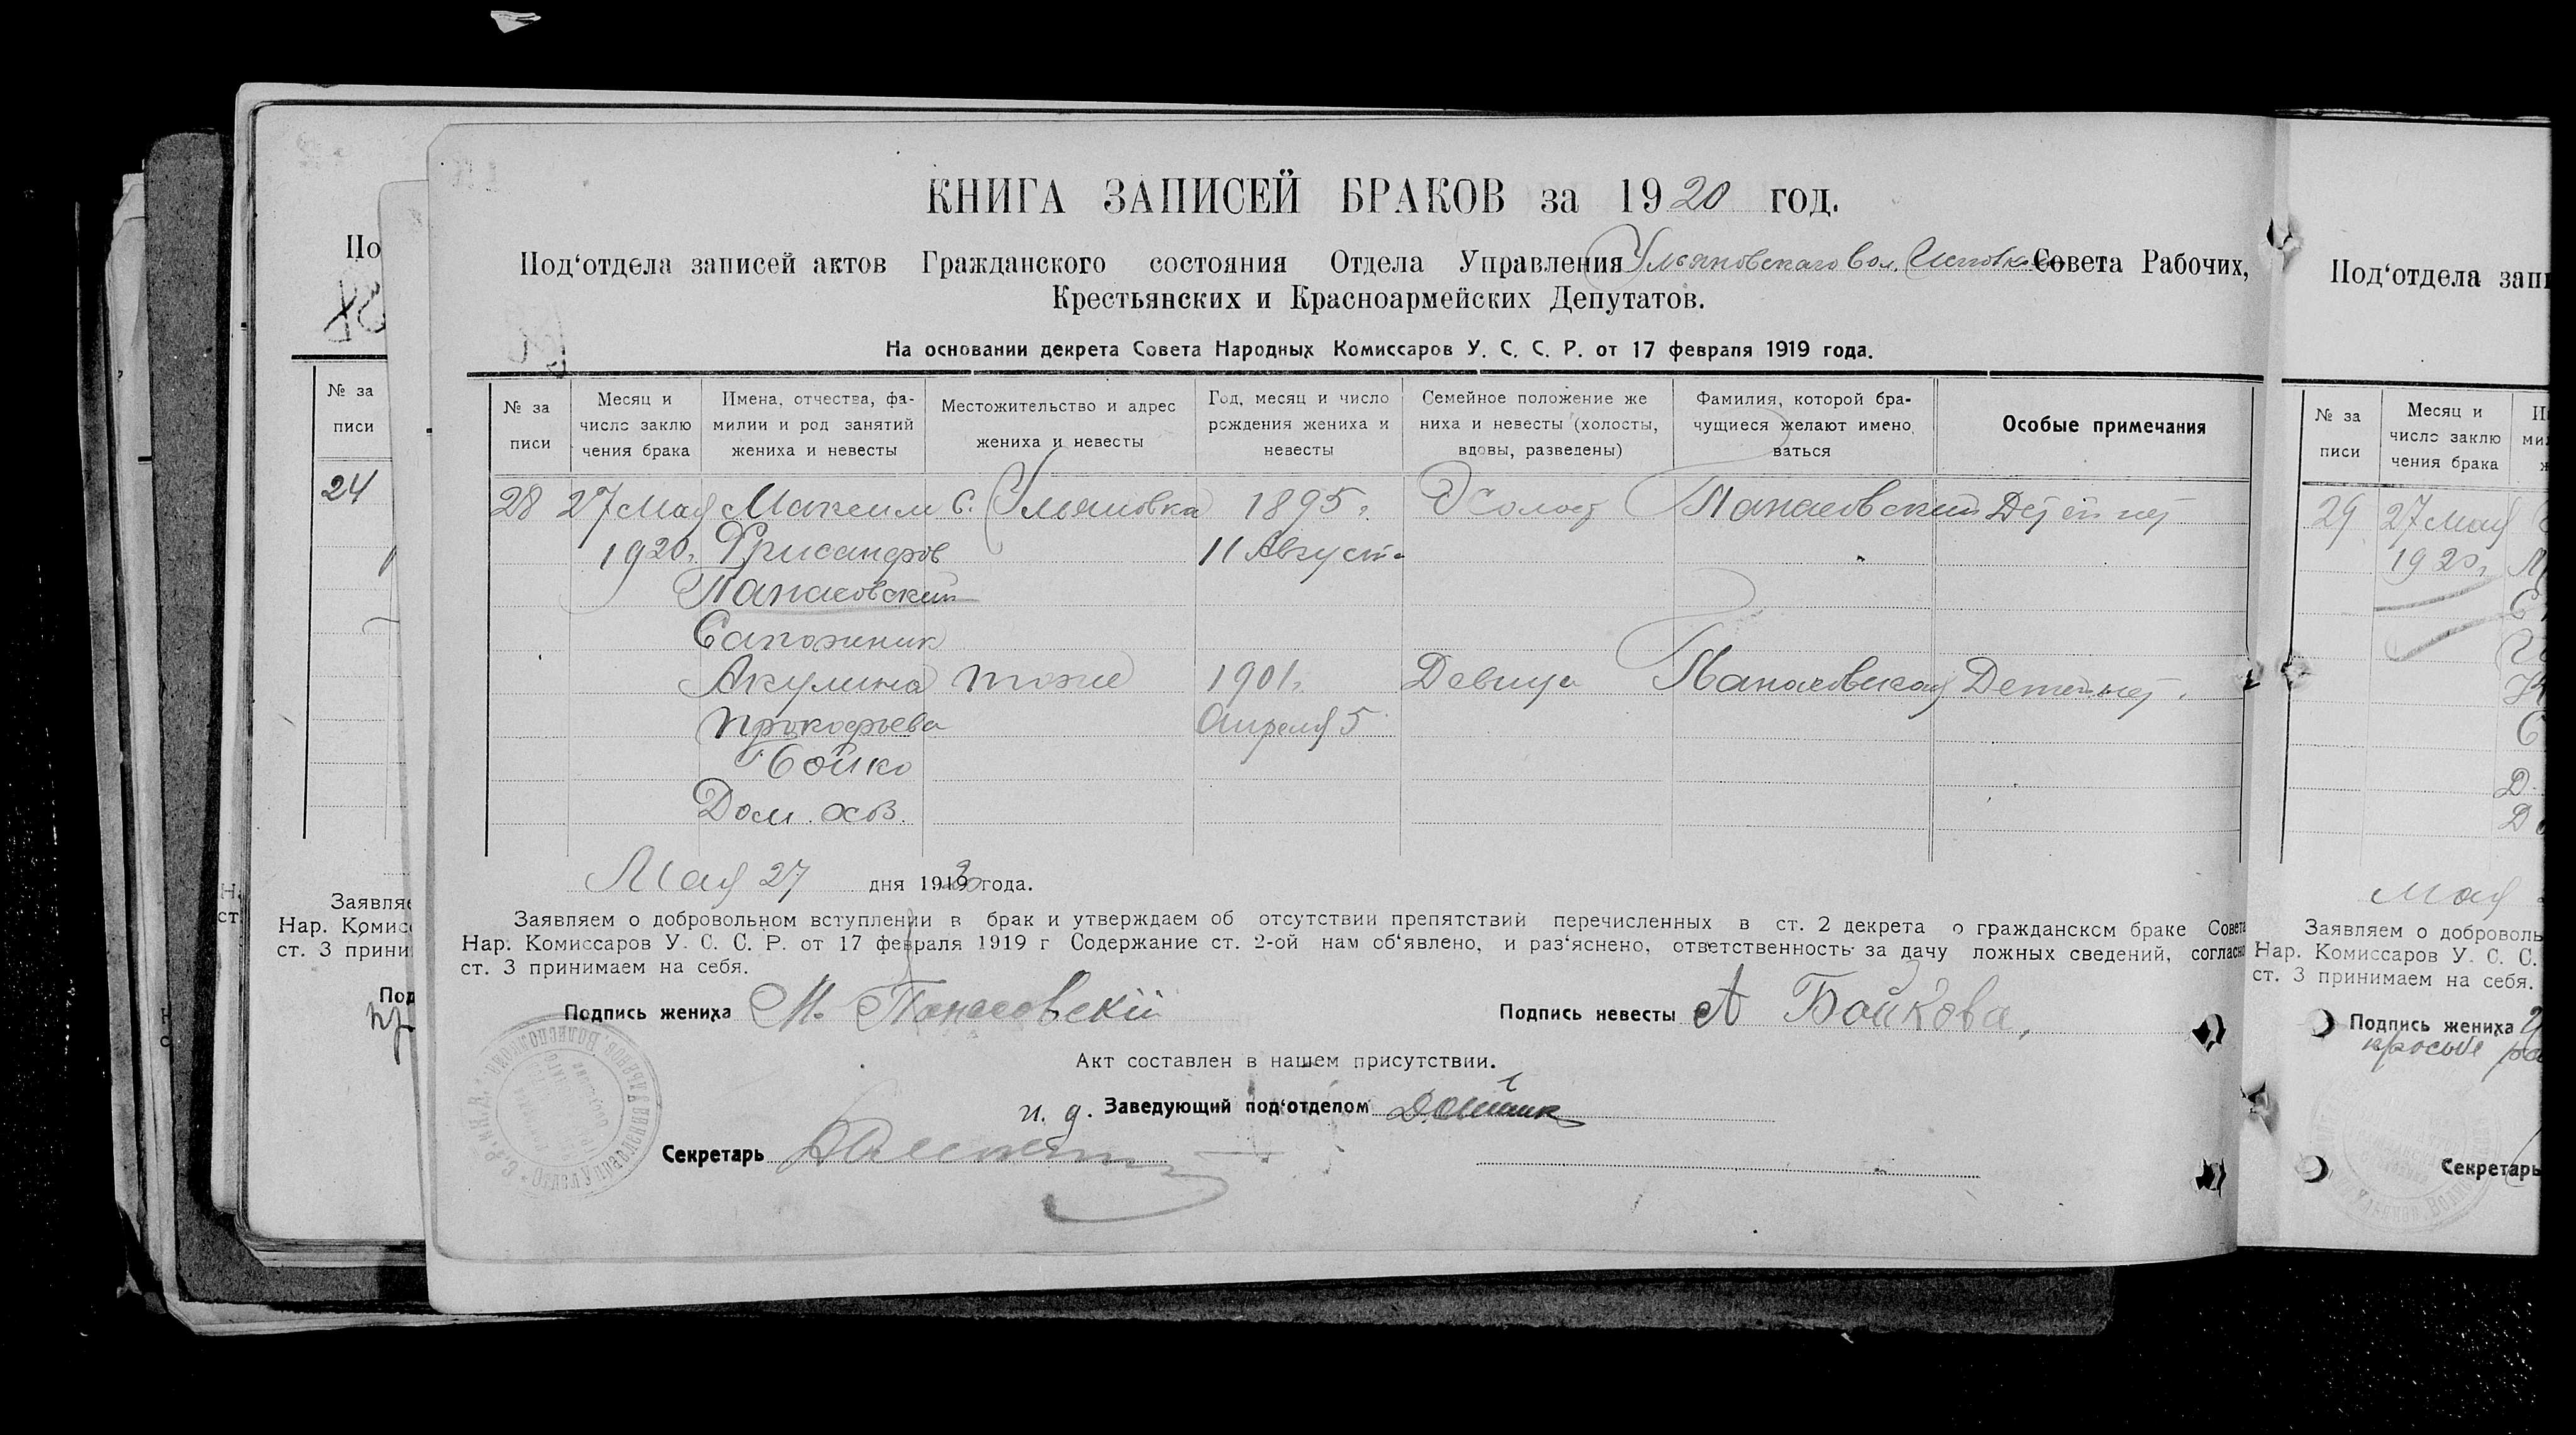 КНИГА ЗАПИСЕЙ БРАКОВ за 1920 год.
Под‘отдела записей актов Гражданского состояния Отдела Управления Ульяновскаго вол. Исполк. Совета Рабочих,
Крестьянских и Красноармейских Депутатов.
На основании декрета Совета Народных Комиссаров У. С. С. Р. от 17 февраля 1919 года.
№ за писи
Месяц и число заклю чения брака
Имена, отчества, фа- милии и род занятий жениха и невесты
Местожительство и адрес жениха и невесты
Год, месяц и число рождения жениха и невесты
Семейное положение же ниха и невесты (холосты, вдовы, разведены)
Фамилия, которой бра- чущиеся желают имено ваться
Особые примечания
28 27 Мая Максим с. Ульяновка 1895 г. Холост Панасовский Детей нет
1920 г. Хрисанфов 11 Август
Панасовский
Сапожник
Акулина тоже 1901 г. Девица Панасовская Детей нет.
Прокофьева Апреля 5
Бойко
Дом. хоз.
Мая 27 дня 1919 20 года.
Заявляем о добровольном вступлении в брак и утверждаем об отсутствии препятствий перечисленных в ст. 2 декрета о гражданском браке Совета
Нар. Комиссаров У. С. С. Р. от 17 февраля 1919 г Содержание ст. 2-ой нам об‘явлено, и раз‘яснено, ответственность за дачу ложных сведений, согласно
ст. 3 принимаем на себя.
Подпись жениха М. Панасовскій
Подпись невесты А Бойкова,
Акт составлен в нашем присутствии.
и. д. Заведующий под‘отделом
Секретарь
По
№ за
писи
24
Заявляе
Нар. Комисс
ст. 3 прини
Под
Под‘отдела запи
№ за писи
Месяц и число заклю чения брака
29 27 Мая
1920 г.
Мая
Заявляем о доброволь
Нар. Комиссаров У. С. С.
ст. 3 принимаем на себя.
Подпись жениха
Секретарь